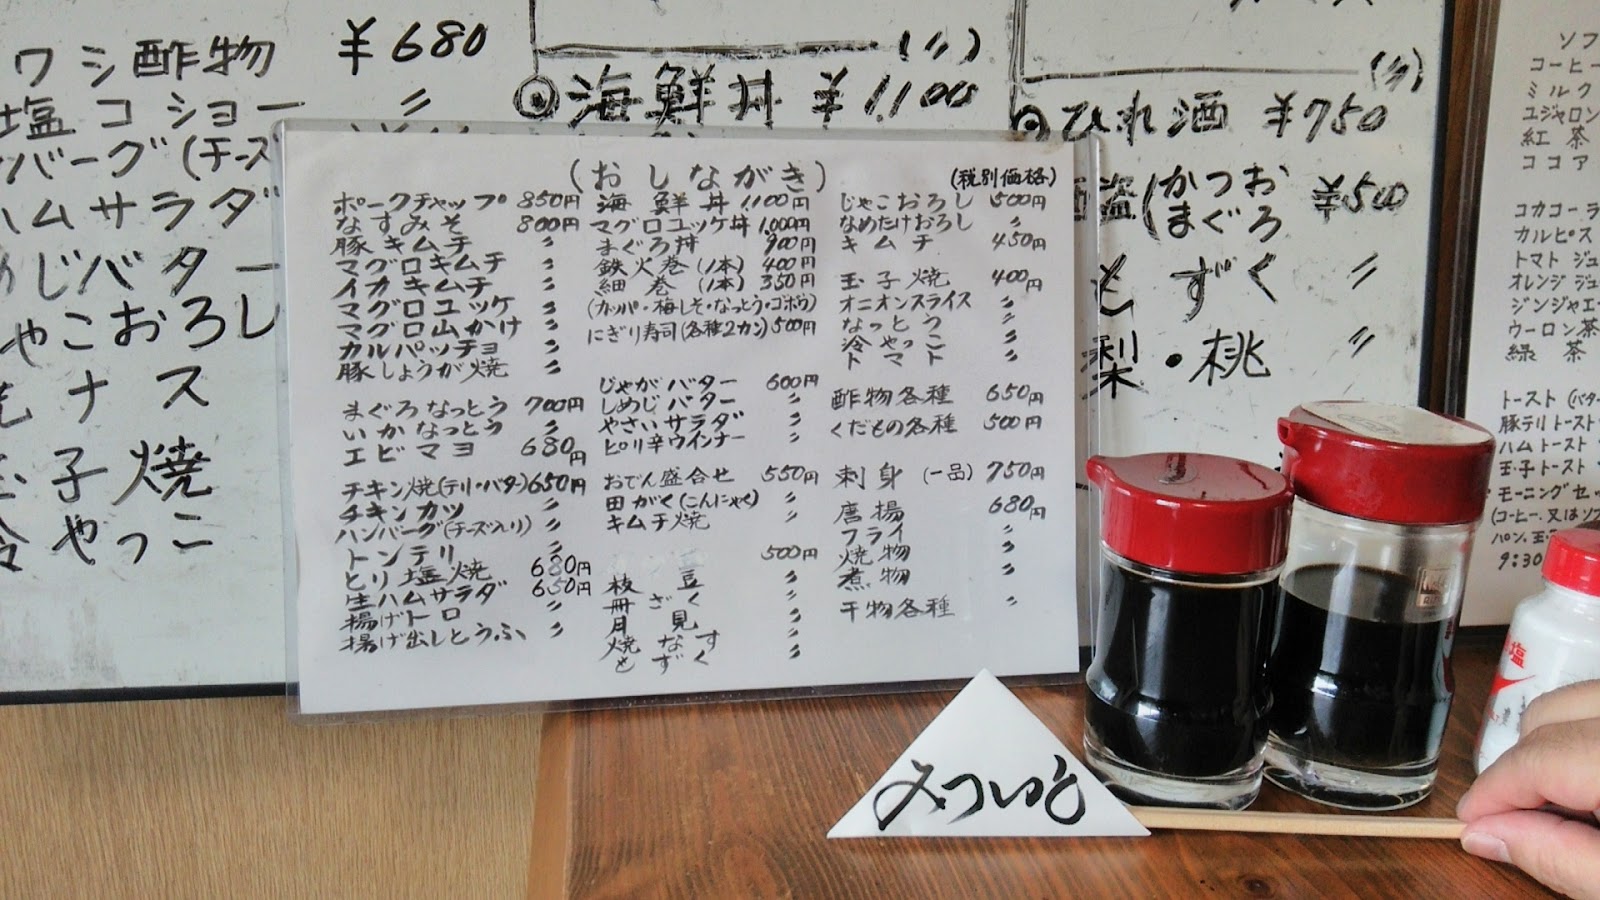 ワシ酢物 ¥680
塩コショー 〃
ンバーグ(チーズ
ハムサラダ
めじバター
ゃこおろし
焼ナス
玉子焼
冷やっこ
(〃)
◎海鮮丼 ¥1,100
(〃)
◎ひれ酒 ¥750
酒盗(かつお まぐろ ¥500
もずく 〃
梨・桃 〃
(おしながき)
(税別価格)
ポークチャップ 850円
なすみそ 800円
豚キムチ 〃
マグロキムチ 〃
イカキムチ 〃
マグロユッケ 〃
マグロ山かけ 〃
カルパッチョ 〃
豚しょうが焼 〃
まぐろなっとう 700円
いかなっとう 〃
エビマヨ 680円
チキン焼(テリ・バタ) 650円
チキンカツ 〃
ハンバーグ(チーズ入り) 〃
トンテリ 〃
とり塩焼 680円
生ハムサラダ 650円
揚げトロ 〃
揚げ出しとうふ 〃
海鮮丼 1,100円
マグロユッケ丼 1,000円
まぐろ丼 900円
鉄火巻(1本) 400円
細巻(1本) 350円
(カッパ・梅しそ・なっとう・ゴボウ)
にぎり寿司(各種2カン) 500円
じゃがバター 600円
しめじバター 〃
やさいサラダ 〃
ピリ辛ウインナー 〃
おでん盛合せ 550円
田がく(こんにゃく) 〃
キムチ焼 〃
500円
枝豆 〃
冊ざく 〃
月見 〃
焼なす 〃
もずく 〃
じゃこおろし 500円
なめたけおろし 〃
キムチ 450円
玉子焼 400円
オニオンスライス 〃
なっとう 〃
冷やっこ 〃
トマト 〃
酢物各種 650円
くだもの各種 500円
刺身(一品) 750円
唐揚 680円
フライ 〃
焼物 〃
煮物 〃
干物各種 〃
ソフ
コーヒー
ミルク
ユジャロン
紅茶
ココア
コカコーラ
カルピス
トマトジュ
オレンジジュ
ジンジャエー
ウーロン茶
緑茶
トースト(バタ
豚テリトースト
ハムトースト
玉子トースト
モーニングセッ
(コーヒー、又はソフ
パン、玉・
9:30
みついし
塩